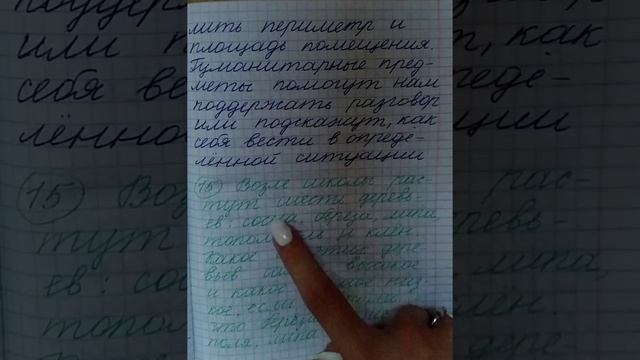 лить периметр и
площадь помещения.
Гуманитарные пред-
меты помогут нам
поддержать разговор
или подскажут, как
себя вести в опреде-
лённой ситуации
15 Возле школы рас-
тут шесть деревь-
ев: сосна, берёза, липа,
и клён.
Какое дере-
вьев высокое
и какое низ-
кое, если
что берёза
поля, липа